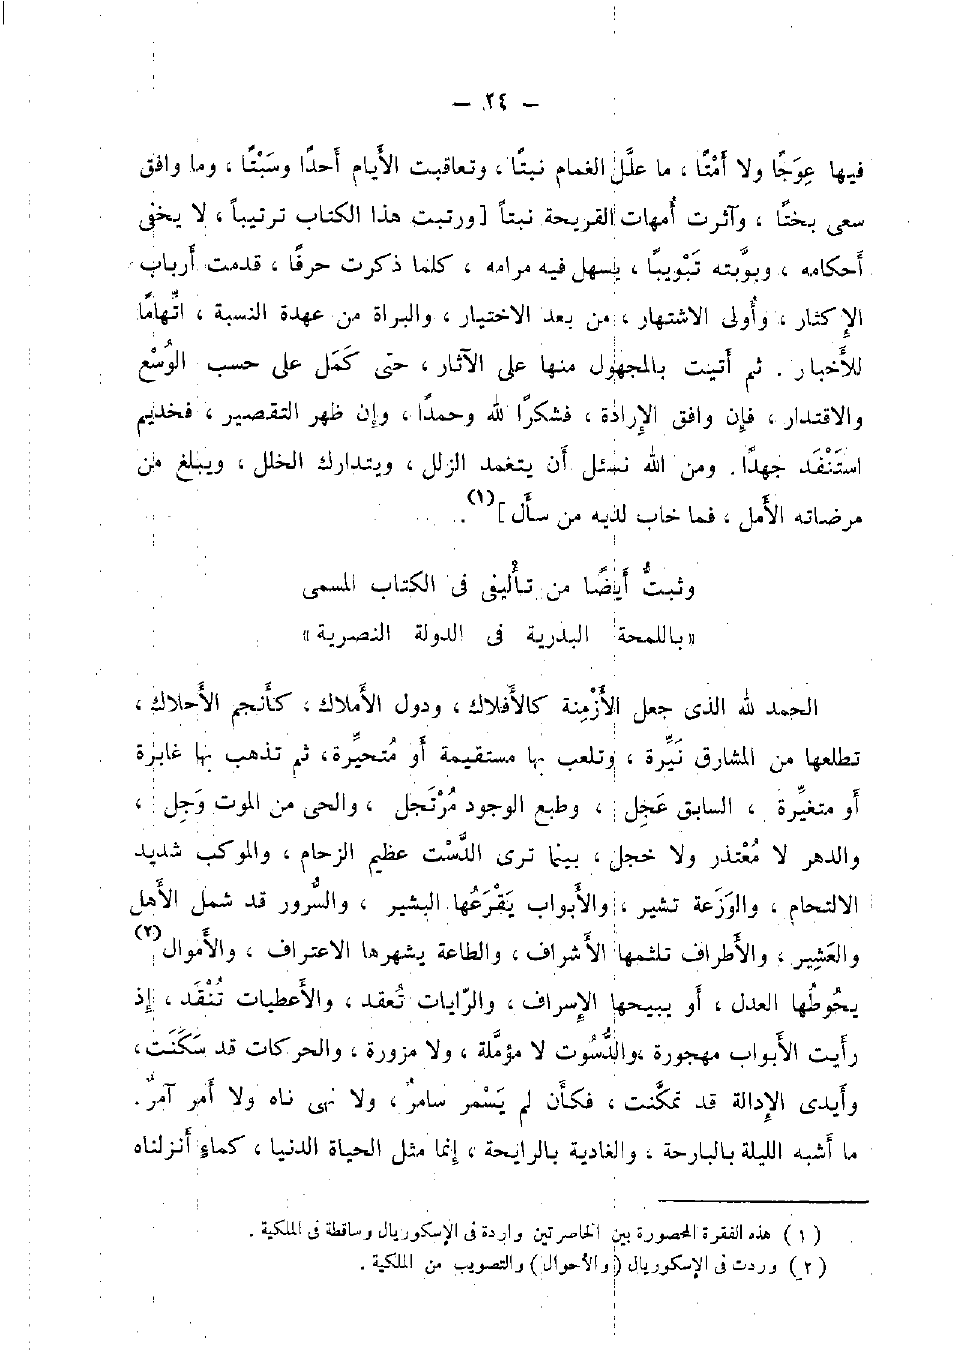 — ٢٤ —
فيها عِوَجًا ولا أَمْتًا ، ما علَّل الغمام نبتًا ، وتعاقبت الأيام أحدًا وسَبْتًا ، وما وافق
سعى بختًا ، وآثرت أُمهات القريحة نبتاً [ورتبت هذا الكتاب ترتيباً ، لا يخفى
أحكامه ، وبوَّبته تَبْويبًا ، يسهل فيه مرامه ، كلما ذكرت حرفًا ، قدمت أرباب
الإكثار ، وأُولى الاشتهار ، من بعد الاختيار ، والبراة من عهدة النسبة ، اتِّهامًا
للأَخبار . ثم أتيت بالمجهول منها على الآثار ، حتى كَمَل على حسب الوُسْع
والاقتدار ، فإن وافق الإرادة ، فشكرًا لله وحمدًا ، وإن ظهر التقصير ، فخديم
استَنْفَد جهدًا . ومن الله نسئل أن يتغمد الزلل ، ويتدارك الخلل ، ويبلغ من
مرضاته الأمل ، فما خاب لديه من سأل ](١) .
وثبتُّ أيضًا من تأليفى فى الكتاب المسمى
«باللمحة البدرية فى الدولة النصرية»
الحمد لله الذى جعل الأَزْمِنة كالأفلاك ، ودول الأملاك ، كأنجم الأحلاك ،
تطلعها من المشارق نَيِّرة ، وتلعب بها مستقيمة أو مُتحيِّرة ، ثم تذهب بها غابرة
أو متغيِّرة ، السابق عَجِل ، وطبع الوجود مُرْتَجل ، والحى من الموت وَجِل ،
والدهر لا مُعْتذر ولا خجل ، بينما ترى الدَّسْت عظيم الزحام ، والموكب شديد
الالتحام ، والوَزَعة تشير ، والأبواب يَقْرَعُها البشير ، والسُّرور قد شمل الأهل
والعَشِير ، والأطراف تلثمها الأشراف ، والطاعة يشهرها الاعتراف ، والأموال(٢)
يحُوطُها العدل ، أو يبيحها الإسراف ، والرّايات تُعقد ، والأعطيات تُنْقَد ، إذ
رأيت الأبواب مهجورة ،والدُّسُوت لا مؤمَّلة ، ولا مزورة ، والحركات قد سَكَنَت ،
وأيدى الإدالة قد تمكَّنت ، فكأن لم يَسْمر سامرٌ ، ولا نهى ناه ولا أمر آمرٌ .
ما أشبه الليلة بالبارحة ، والغادية بالرايحة ، إنما مثل الحياة الدنيا ، كماء أنزلناه
(١) هذه الفقرة المحصورة بين الخاصرتين واردة فى الإسكوريال وساقطة فى الملكية .
(٢) وردت فى الإسكوريال (والأحوال) والتصويب من الملكية .